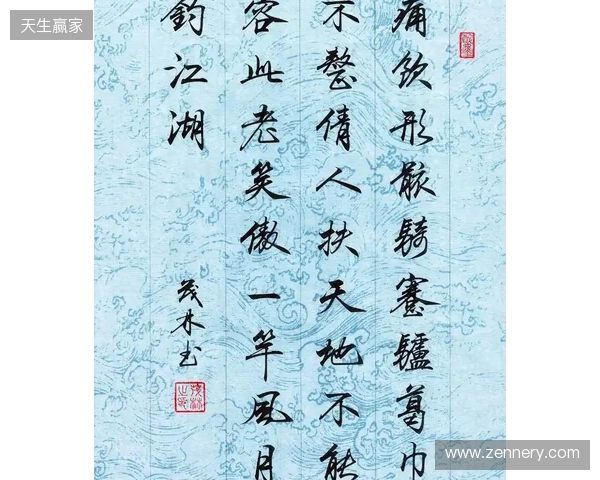 天生赢家
痛饮形骸骑蹇驴葛巾
不整倩人扶天地不能
容此老笑傲一竿风月
钓江湖
茂林书
www.zennery.com